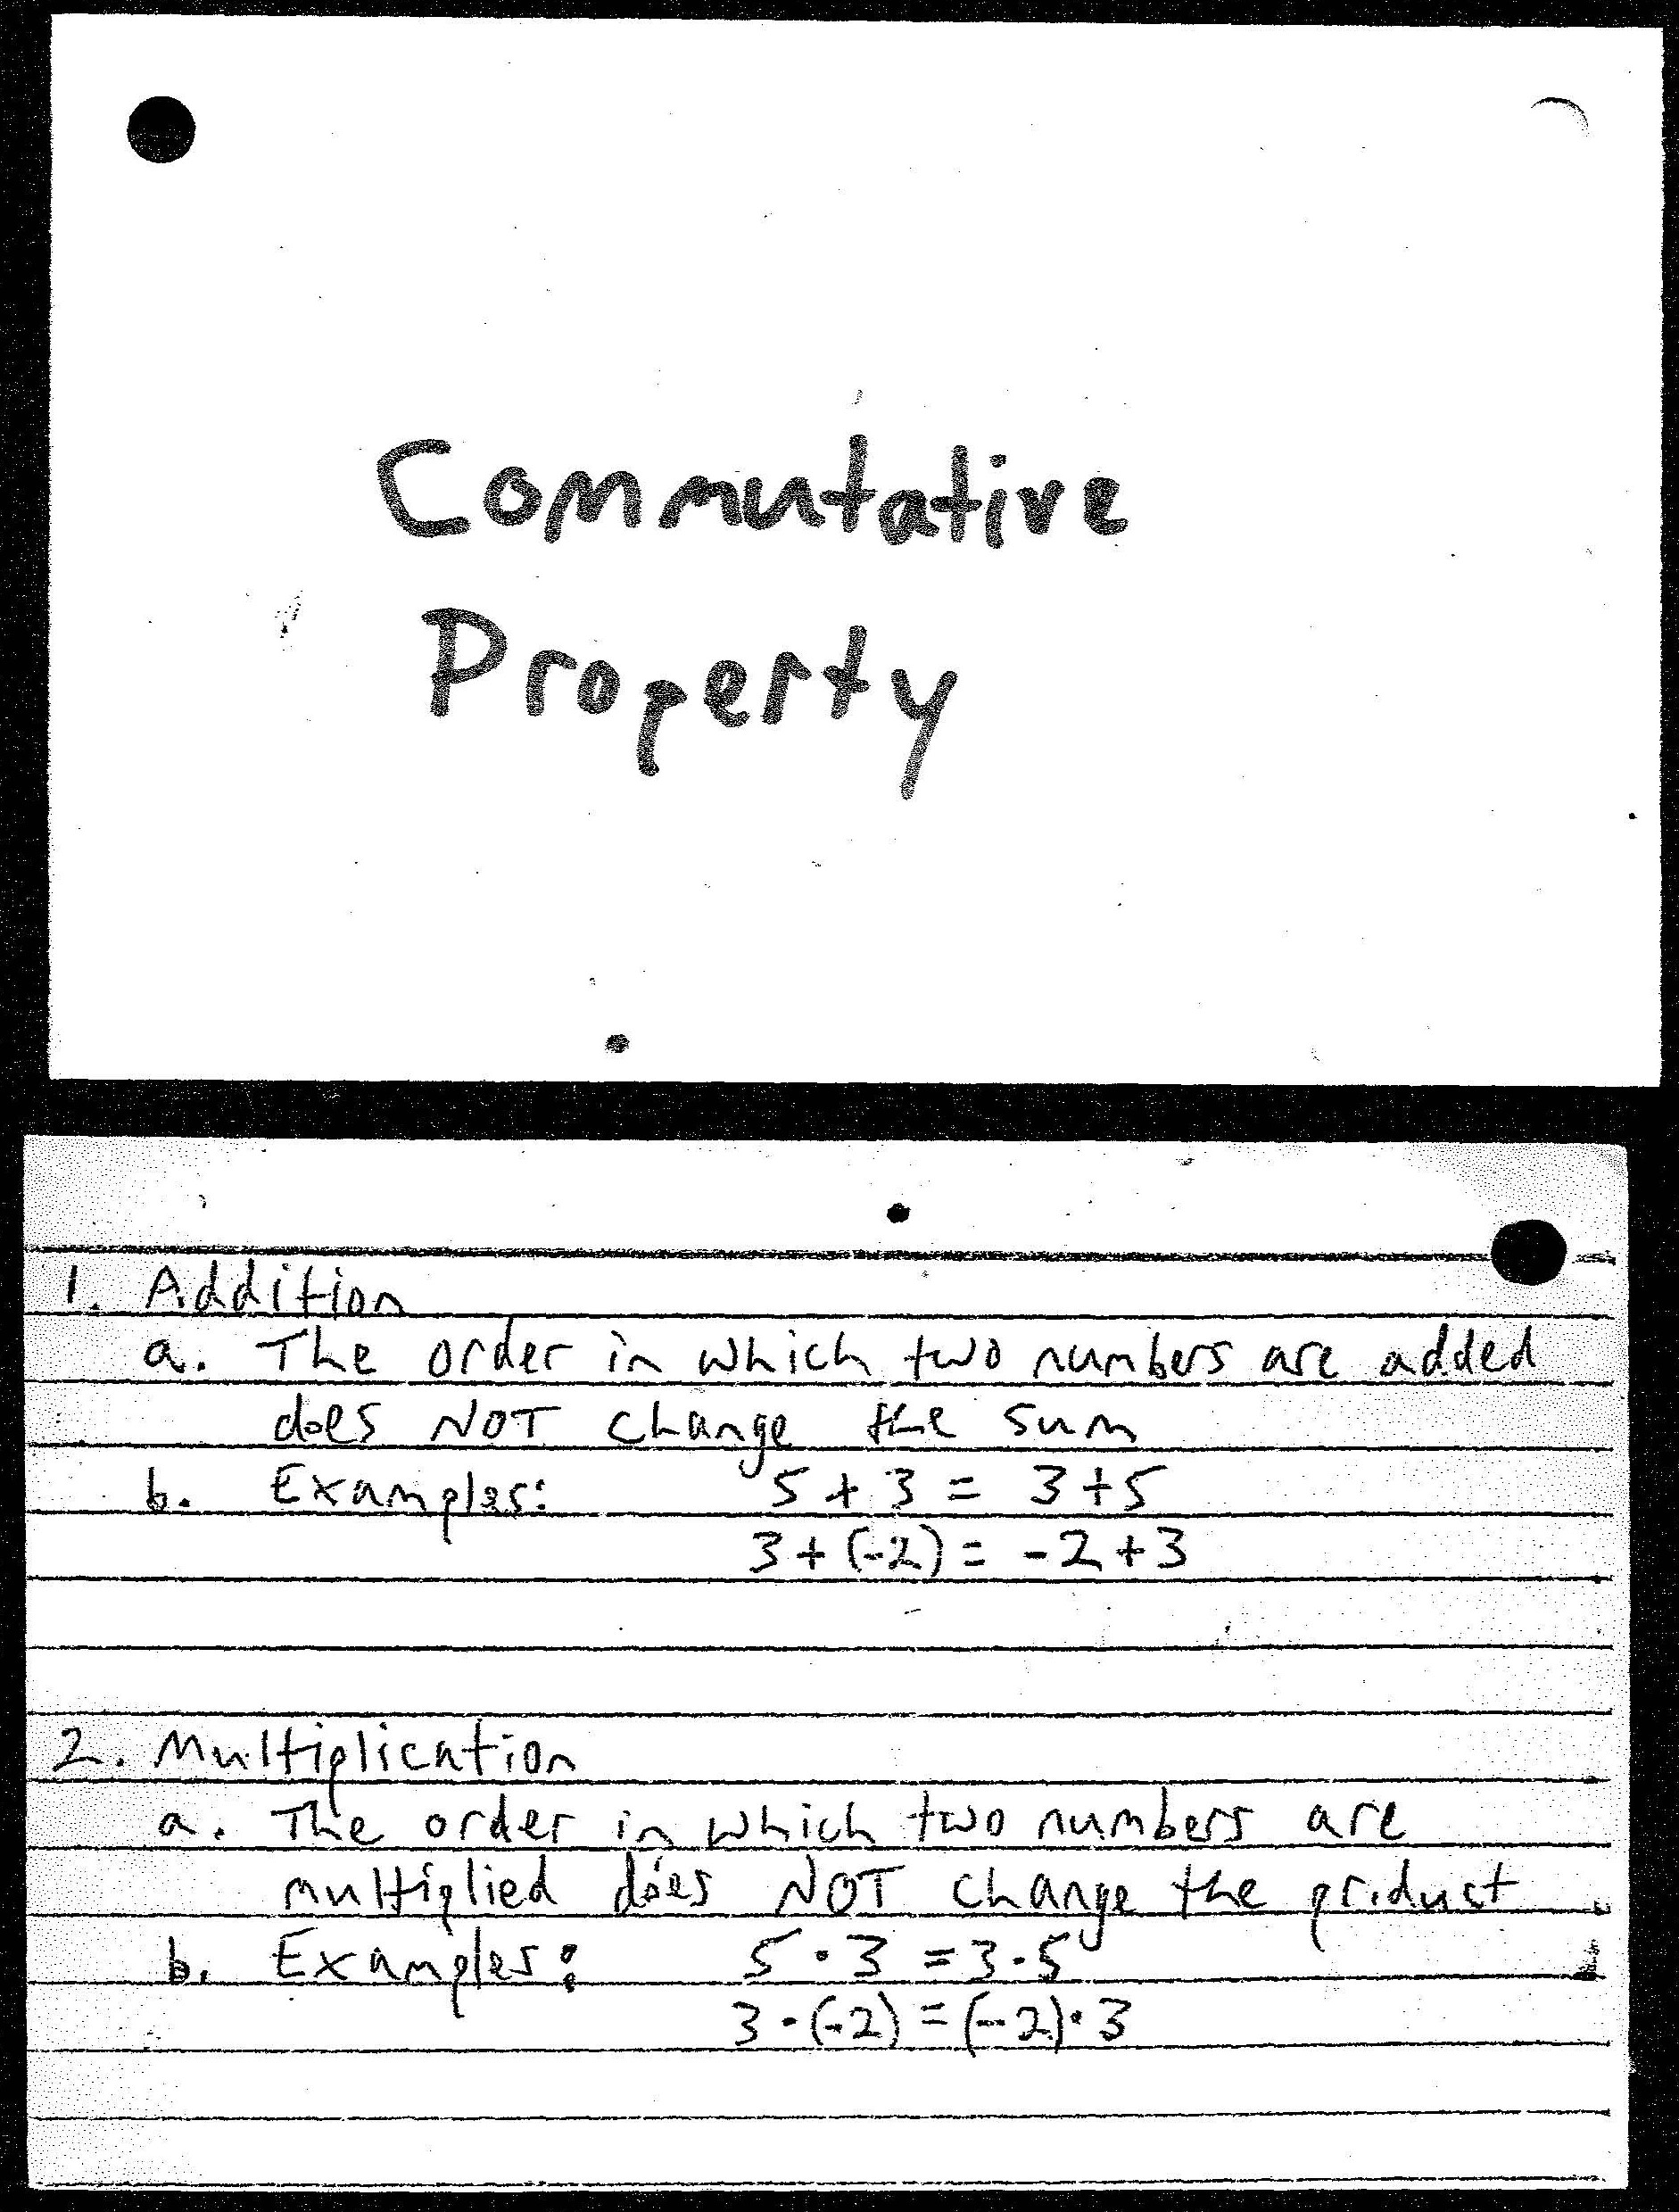 Commutative
Property
1. Addition
a. The order in which two numbers are added
does NOT change the sum
b. Examples: 5 + 3 = 3 + 5
3 + (-2) = -2 + 3
2. Multiplication
a. The order in which two numbers are
multiplied does NOT change the product
b. Examples: 5 · 3 = 3 · 5
3 · (-2) = (-2) · 3